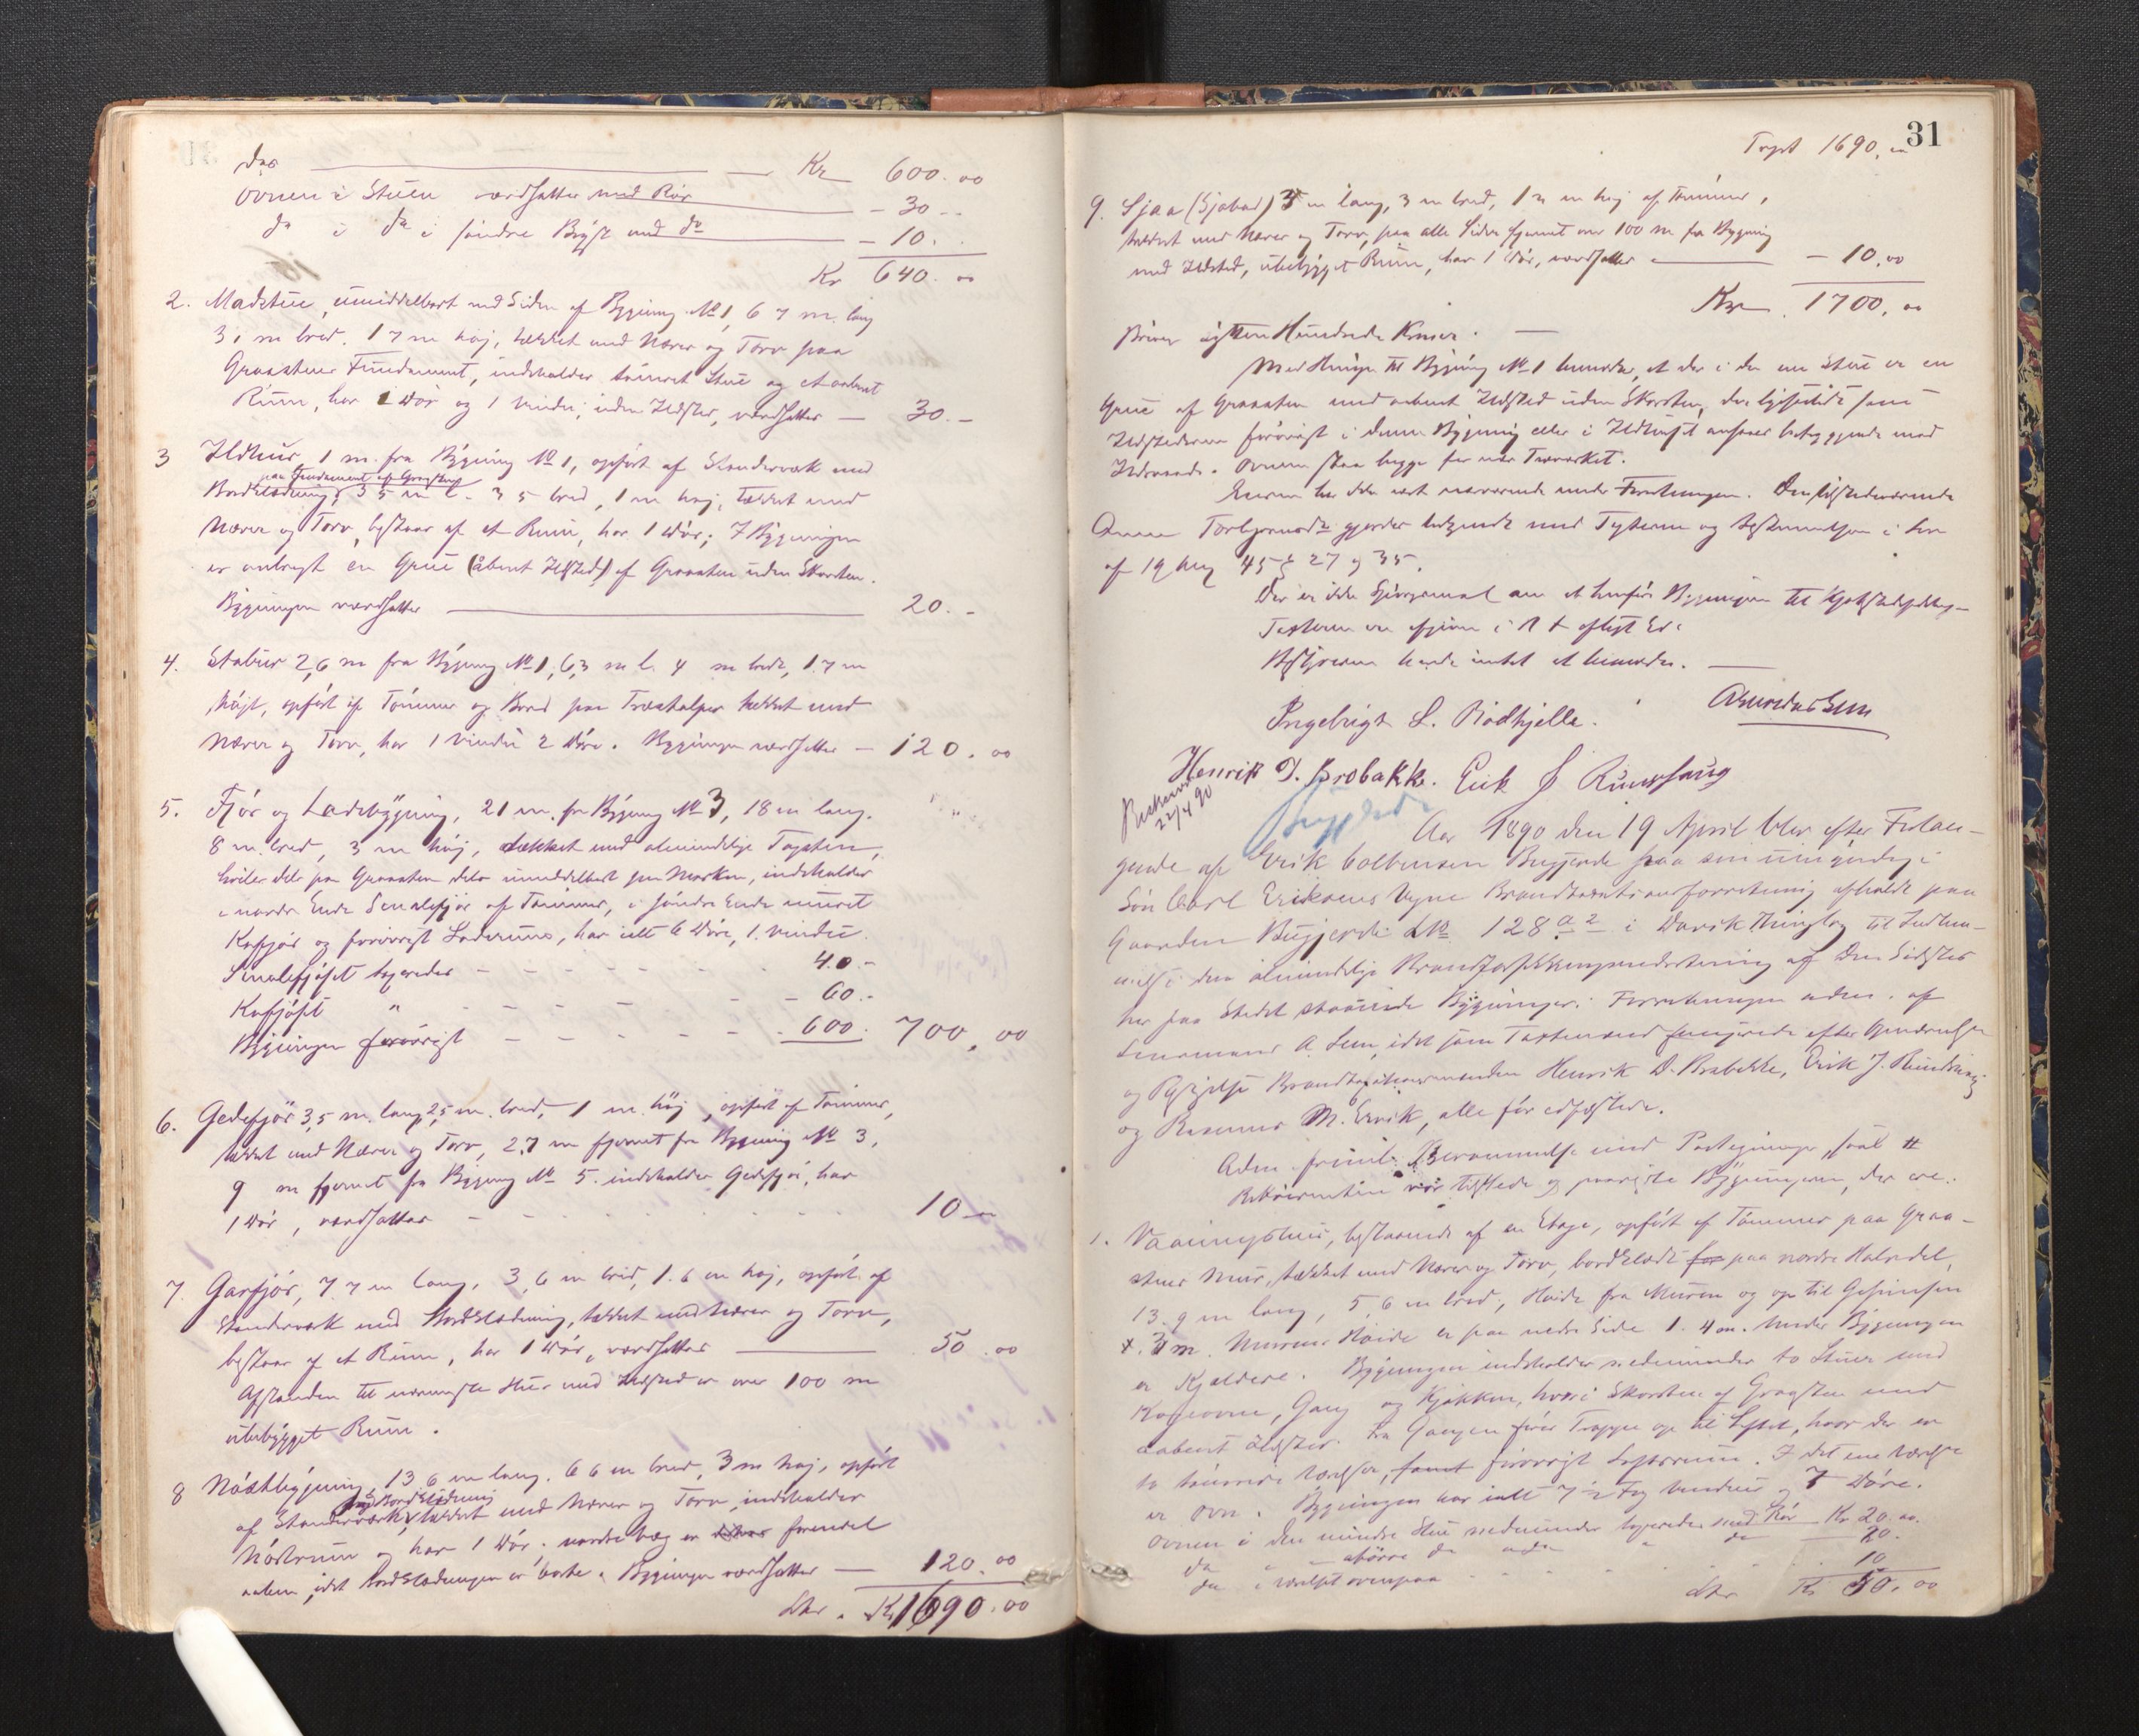 do Kr 600.00
Ovnen i Stuen værdsættes med Rør - 30 --
do i do i søndre Bygn med do - 10.
Kr 640.00
2. Madstue, umiddelbart ved Siden af Bygning No 1, 6 7 m. lang
3 1 m bred. 1 7 m høj, tækket med Næver og Torv paa
Graastens Fundament, indeholder tømret Stue og et aabent
Rum, har 1 Dør og 1 Vindu, uden Ildsted, værdsættes — 30.-
3 Ildhus, 1 m. fra Bygning No 1, opført af Stenderværk med
paa Fundament af Graasten
Bordklædning, 3 5 m l. 3 5 bred, 1 m høj, tækket med
Næver og Torv, bestaar af et Rum, har 1 Dør; I Bygningen
er anbragt en Grue (åbent Ildsted) af Graasten uden Skorsten.
Bygningen værdsættes 20.-
4. Stabur 2,6 m fra Bygning No 1, 6,3 m l. 4 m bred, 1.7 m
højt, opført af Tømmer og Bord paa Træstolper tækket med
Næver og Torv, har 1 Vindu 2 Døre. Bygningen værdsættes — 120.00
5. Fjøs og Ladebygning, 21 m. fra Bygning No 3, 18 m lang.
8 m. bred, 3 m høj, tækket med almindelige Tagsten,
hviler dels paa Graasten dels umiddelbart paa Marken, indeholder
i nordre Ende Smalefjøs af Tømmer, i søndre Ende muret
Kofjøs og forøvrigt Laderum, har ialt 6 Døre, 1. Vindu
Smalefjøset taxeredes - - - 40.-
Kofjøset " - - - 60.-
Bygningen forøvrigt - - - 600. 700,00
6. Gedefjøs 3,5 m. lang 2,5 m. bred, 1 m. høj, opført af Tømmer,
tækket med Næver og Torv, 2,7 m fjernet fra Bygning No 3,
9 m fjernet fra Bygning No 5. indeholder Gedefjøs, har
1 Dør, værdsættes - - - 10 —
7. Garfjøs, 7.7 m lang, 3,6 m bred, 1.6 m høj, opført af
Stenderværk med Bordklædning, tækket med Næver og Torv,
bestaar af et Rum, har 1 Dør, værdsættes 50.00
Afstanden til nærmeste Hus med Ildsted er over 100 m
ubebygget Rum.
8 Nøstbygning 13 6 m lang. 6 6 m bred, 3 m høj, opført
med Bordklædning
af Stenderværk, tækket med Næver og Torv, indeholder
Nøstrum og har 1 Dør. nordre Væg er forendel
aaben, idet Bordklædningen er borte. Bygningen værdsættes — 120.00
Lbr. Kr 1690.00
31
Trpt 1690,00
9. Sjaa (Sjøbod) 3 m lang, 3 m bred, 1 m høj af Tømmer,
tækket med Næver og Torv, paa alle Sider fjernet over 100 m fra Bygning
med Ildsted, ubebygget Rum, har 1 Dør, værdsættes — 10.00
Kr. 1700,00
skriver sytten Hundrede Kroner. —
Med Hensyn til Bygning No 1 bemærkes, at der i den ene Stue er en
Grue af Graasten med aabent Ildsted uden Skorsten, der ligesaalidt som
Ildstederne forøvrigt i denne Bygning eller i Ildhuset ansees betryggende mod
Ildsvaade. Ovnene staa begge for nær Træværket.
Eieren har ikke vært nærværende under Forretningen. Den tilstedeværende
gjordes bekjendt med Taxterne og Bestemmelsen i Lov
af 19 Aug 45 § 27 og 35.
Der er ikke Spørgsmaal om at henføre Bygningen til
Taxterne ere afgivne i aflagt Ed.
Bestyreren havde intet at bemærke. —
ASmedeseim
Ingebrigt L. Rødhjelle.
Henrik D. Brobakke. Erik J Rundhaug
22/4 90
Bugjerde
Aar 1890 den 19 April blev efter Forlan-
gende af Erik Colbensen Bugjerde paa sin umyndige
Søn Carl Eriksens Vegne Brandtaxtionsforretning afholdt paa
Gaarden Bugjerde LNo 128 a 2 i Davik Thinglag til Indlem-
melse i den almindelige Brandforsikringsindretning af den Sidstes
her paa Stedet staaende Bygninger. Forretningen adm. af
Lensmand A. Sem, idet som Taxtmænd fungerede efter Opnævnelse
og Brandtaxtionsmændene Henrik D. Brobakke, Erik J. Rundhaug
og Rasmus M. Ervik, alle før edfæstede.
Adm. freml. Berammelse med Paategninger, saal #
Rekvirenten var tilstede og paaviste Bygningerne, der ere:
1. Vaaningshus, bestaaende af en Etage, opført af Tømmer paa Graa-
stens Mur, tækket med Næver og Torv, bordklædt paa nordre Halvdel,
13.9 m lang, 5,6 m bred, Høide fra Muren og op til Gesimsen
3 m. Murens Høide er paa nedre Side 1.4 m. Under Bygningen
er Kjeldere. Bygningen indeholder nedenunder to Stuer med
Kogeovne, Gang og Kjøkken, hvori Skorsten af Graasten med
aabent Ildsted. Fra Gangen fører Trappe op til Loftet, hvor der er
to tømrede Værelser, forøvrigt Loftsrum. I det ene Værelse
er Ovn. Bygningen har ialt 7 ½ Fag Vinduer og 7 Døre.
Ovnen i den mindre Stue nedenunder taxeredes med Rør Kr 20.00
do " - større do do " do 20.
do i Værelset ovenpaa - - - 10
Lbr Kr 50.00